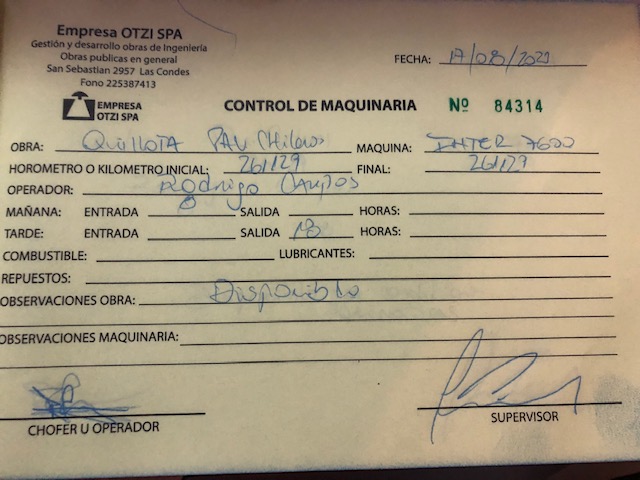 Empresa OTZI SPA
Gestión y desarrollo obras de Ingeniería
Obras publicas en general
San Sebastian 2957 Las Condes
Fono 225387413
FECHA: 17/08/2021
EMPRESA
OTZI SPA
CONTROL DE MAQUINARIA Nº 84314
OBRA: Quillota Pav Chilenos MAQUINA: INTER 7600
HOROMETRO O KILOMETRO INICIAL: 261129 FINAL: 261129
OPERADOR: Rodrigo Campos
MAÑANA: ENTRADA 8 SALIDA HORAS:
TARDE: ENTRADA SALIDA 18 HORAS:
COMBUSTIBLE: LUBRICANTES:
REPUESTOS:
OBSERVACIONES OBRA: Disponible
OBSERVACIONES MAQUINARIA:
CHOFER U OPERADOR SUPERVISOR